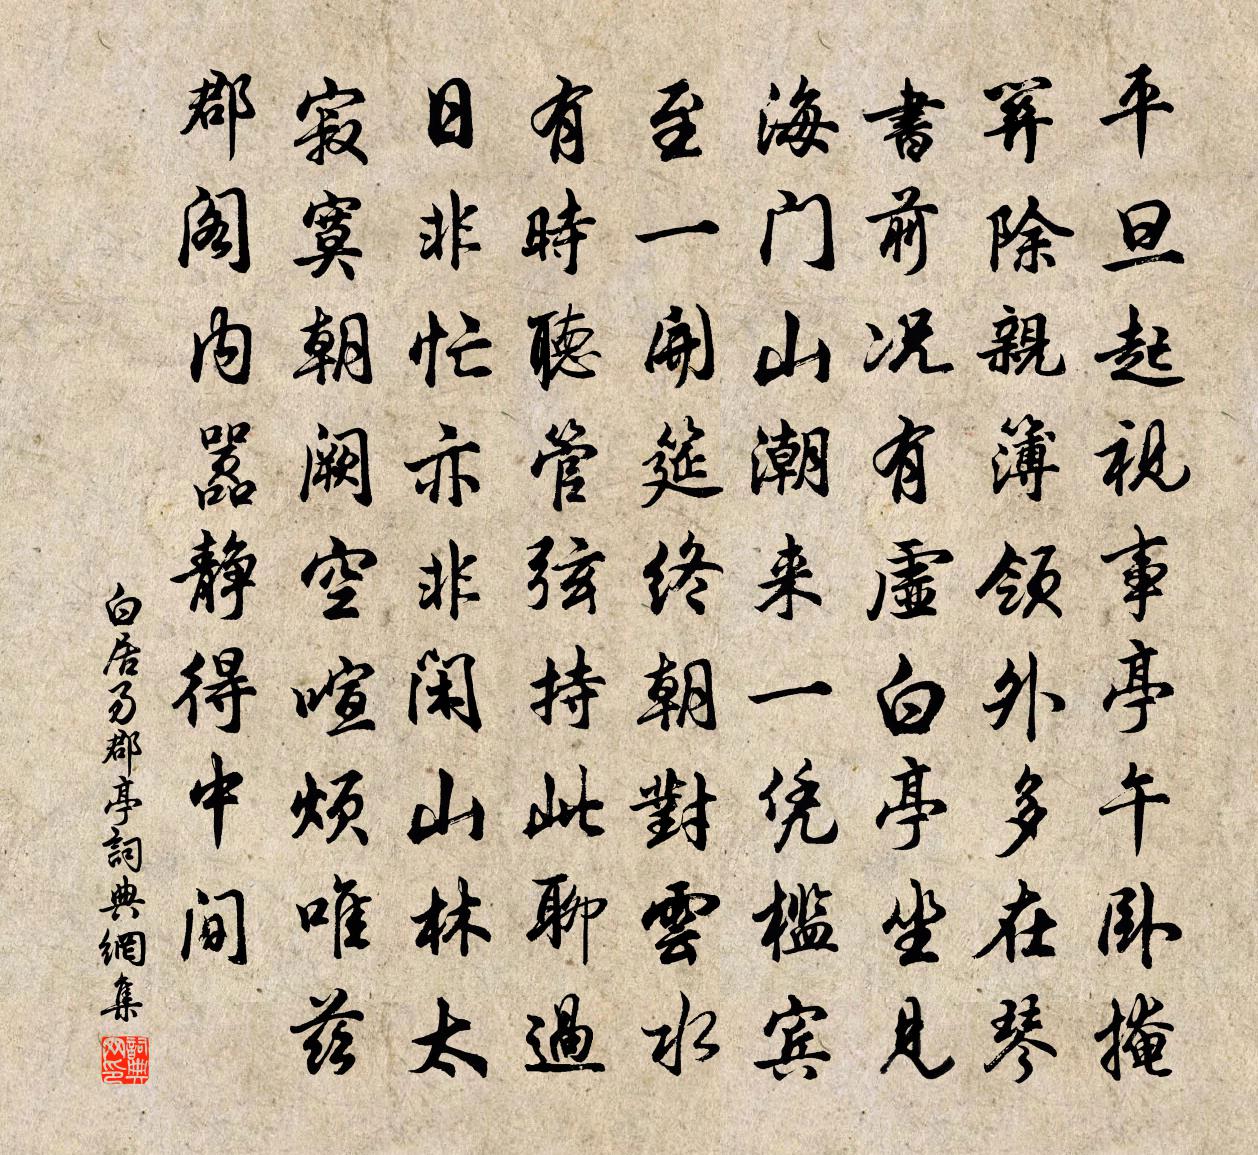 平旦起視事亭午卧掩
关除親簿領外多在琴
書前况有虛白亭坐見
海门山潮来一凭檻宾
至一開筵終朝對雲水
有時聽管弦持此聊過
日非忙亦非閑山林太
寂寞朝阙空喧煩唯茲
郡阁内嚣静得中间
白居易郡亭詞典網集
詞典网印